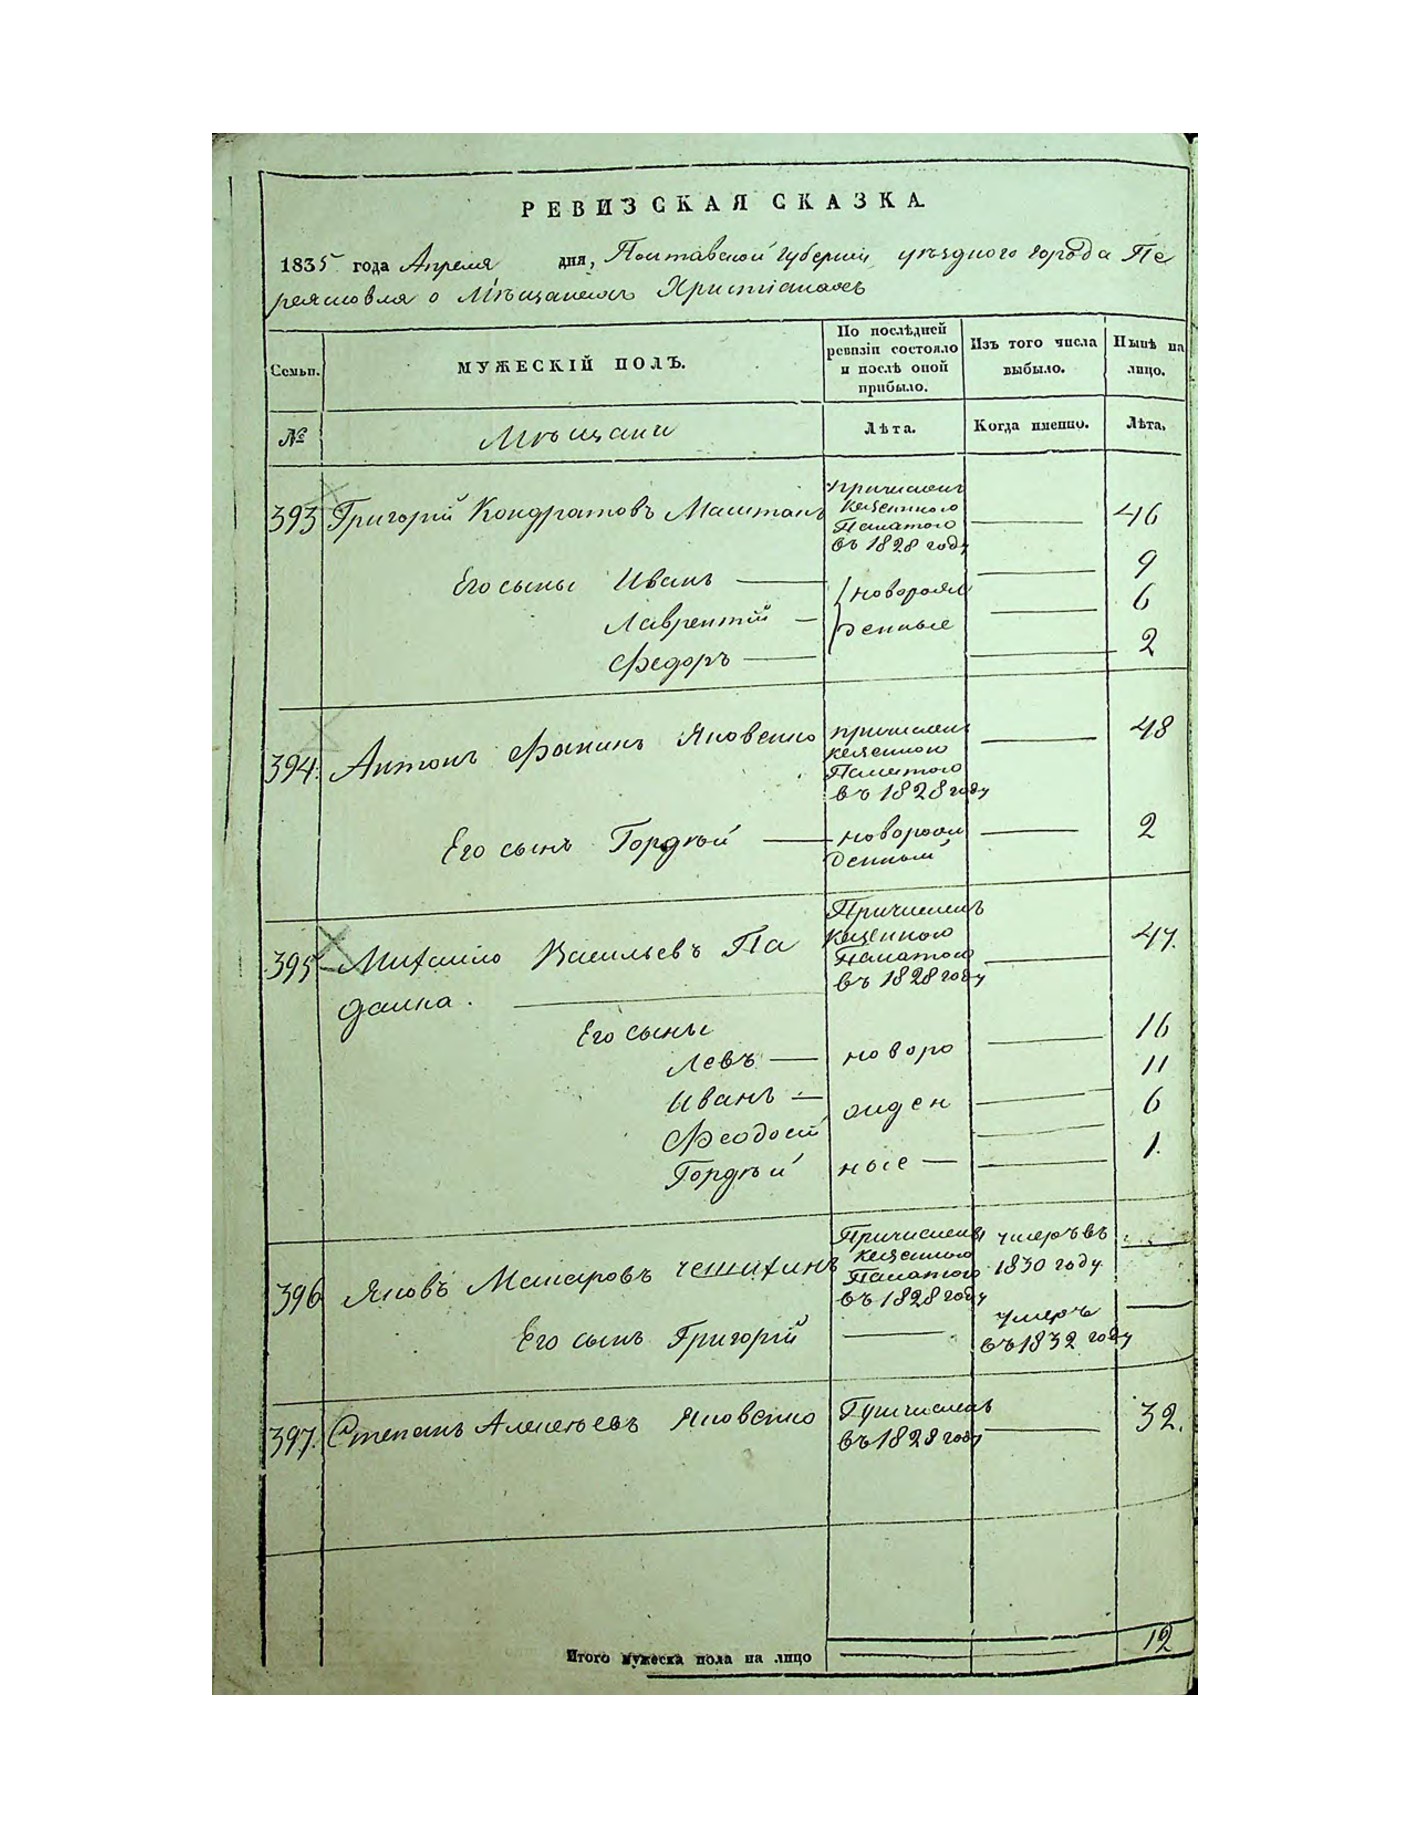 РЕВИЗСКАЯ СКАЗКА.
1835 года Апреля дня, Полтавской Губернии уѣздного города Пе
реяславля о Мѣщанахъ Христіанахъ
Семьи.
МУЖЕСКІЙ ПОЛЪ.
По послѣдней ревизіи состояло и послѣ оной прибыло.
Изъ того числа выбыло.
Нынѣ на лицо.
№
Мѣщани
Лѣта.
Когда именно.
Лѣта.
393 Григорій Кондратовъ причисленъ казенного Палатого въ 1828 году 46
Его сыны Иванъ новорож 9
Лаврентій денные 6
Федоръ 2
394. Антонъ Яковенко причисленъ казенного Палатого въ 1828 году 48
Его сынъ Гордѣй новорож денный 2
395 Михайло Васильевъ Па Причисленъ казенного Палатого въ 1828 году 47.
далка.
Его сыны 16
Левъ новоро 11
Иванъ жден 6
Феодосій 1.
Гордѣй ные
396 Яковъ Макаровъ Причислены казенного Палатого въ 1828 году умеръ въ 1830 году
Его сынъ Григорій умеръ въ 1832 году
397. Степанъ Алексѣевъ Яковенко Причисленъ въ 1828 году 32.
Итого мужеска пола на лицо 12